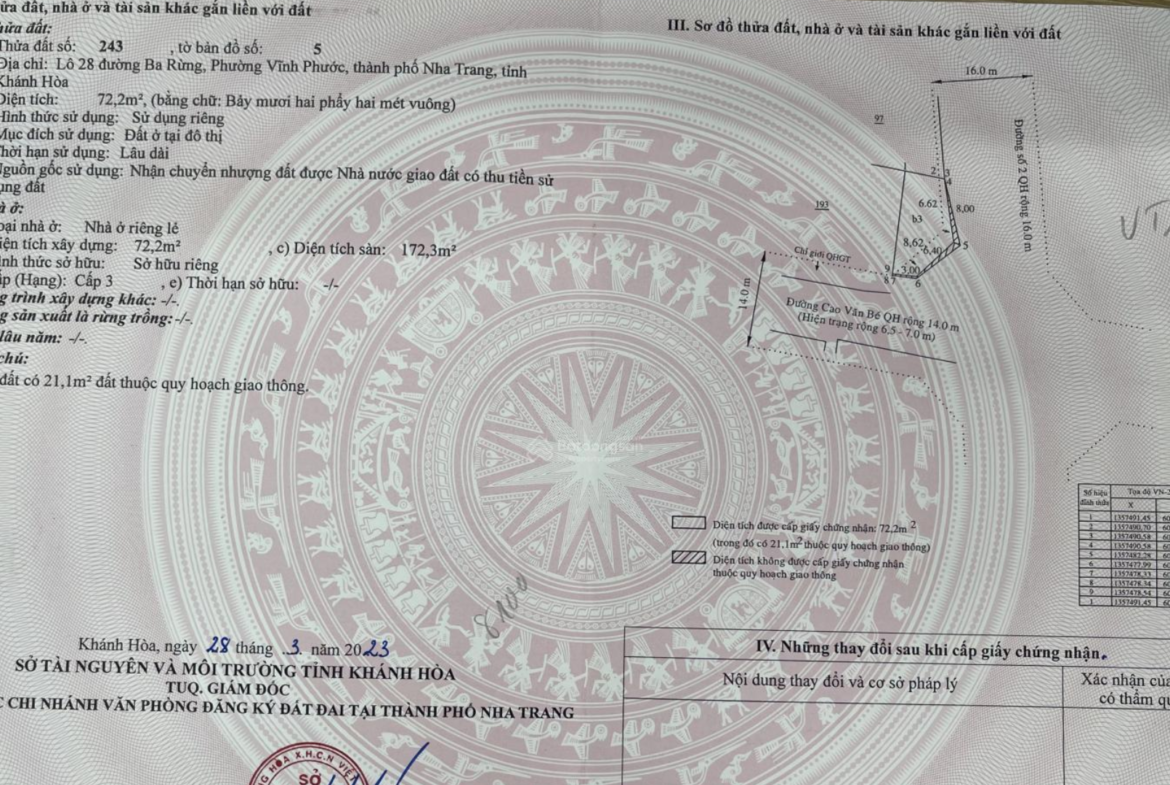 ửa đất, nhà ở và tài sản khác gắn liền với đất
ửa đất:
Thửa đất số: 243 , tờ bản đồ số: 5
Địa chỉ: Lô 28 đường Ba Rừng, Phường Vĩnh Phước, thành phố Nha Trang, tỉnh
Khánh Hòa
Diện tích: 72,2m², (bằng chữ: Bảy mươi hai phẩy hai mét vuông)
Hình thức sử dụng: Sử dụng riêng
Mục đích sử dụng: Đất ở tại đô thị
Thời hạn sử dụng: Lâu dài
Nguồn gốc sử dụng: Nhận chuyển nhượng đất được Nhà nước giao đất có thu tiền sử
ụng đất
à ở:
oại nhà ở: Nhà ở riêng lẻ
iện tích xây dựng: 72,2m² , c) Diện tích sàn: 172,3m²
ình thức sở hữu: Sở hữu riêng
ấp (Hạng): Cấp 3 , e) Thời hạn sở hữu: -/-
g trình xây dựng khác: -/-.
g sản xuất là rừng trồng: -/-.
lâu năm: -/-.
chú:
đất có 21,1m² đất thuộc quy hoạch giao thông.
III. Sơ đồ thửa đất, nhà ở và tài sản khác gắn liền với đất
16.0 m
97
Đường số 2 QH rộng 16.0 m
2 3
4
6.62
8,00
b3
193
8,62
6,40
5
Chỉ giới QHGT
9
3,00
8 7
6
14.0 m
Đường Cao Văn Bé QH rộng 14.0 m
(Hiện trạng rộng 6.5 - 7.0 m)
Số hiệu đỉnh thửa
Tọa độ VN-
X
1 1357491.45
Diện tích được cấp giấy chứng nhận: 72,2m²
(trong đó có 21,1m² thuộc quy hoạch giao thông)
Diện tích không được cấp giấy chứng nhận
thuộc quy hoạch giao thông
Batdongsan
Khánh Hòa, ngày 28 tháng .3. năm 2023
SỞ TÀI NGUYÊN VÀ MÔI TRƯỜNG TỈNH KHÁNH HÒA
TUQ. GIÁM ĐỐC
C CHI NHÁNH VĂN PHÒNG ĐĂNG KÝ ĐẤT ĐAI TẠI THÀNH PHỐ NHA TRANG
HÒA X.H.C.N VIỆ
SỞ
IV. Những thay đổi sau khi cấp giấy chứng nhận.
Nội dung thay đổi và cơ sở pháp lý
Xác nhận của
có thẩm qu